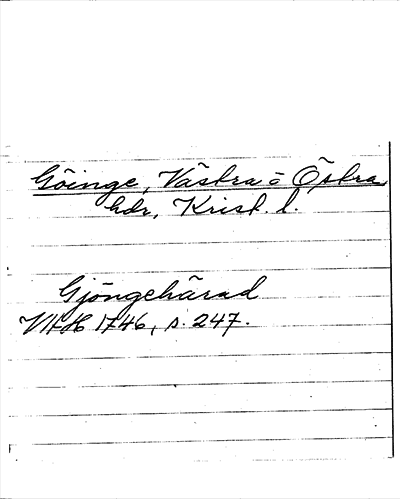 Göinge, Västra o Östra
hdr, Krist. l.
Gjöngehärad
VHH 1746, s. 247.